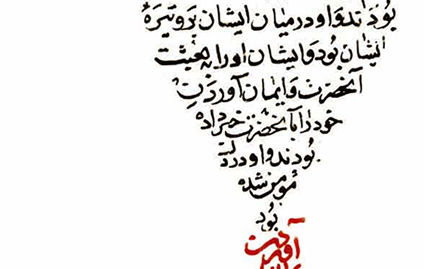 بوده‌اند و او در میان ایشان بر وتیرهٔ
ایشان بود و ایشان او را به بعثت
آنحضرت و ایمان آوردن
خود را با آنحضرت خبر داده
بودند و او در دل
مومن شده
بود